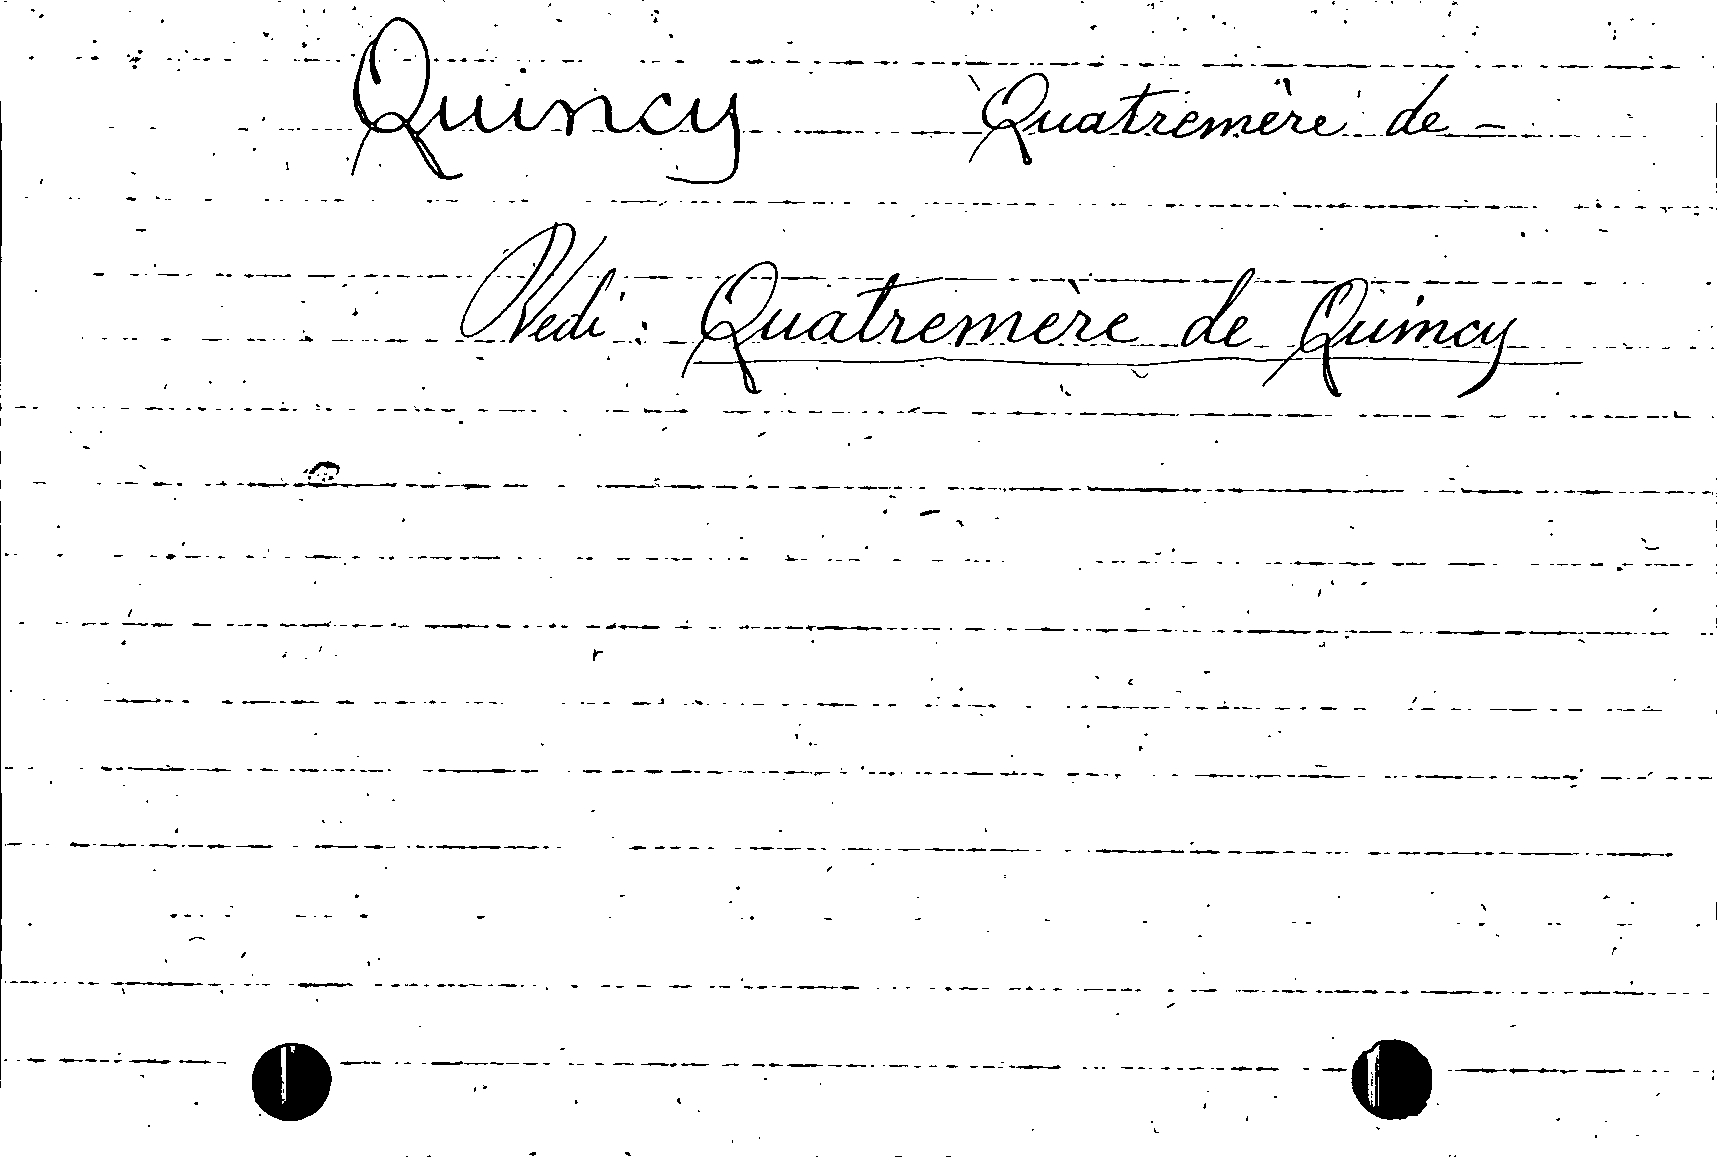 Quincy Quatremère de -
Vedi : Quatremère de Quincy